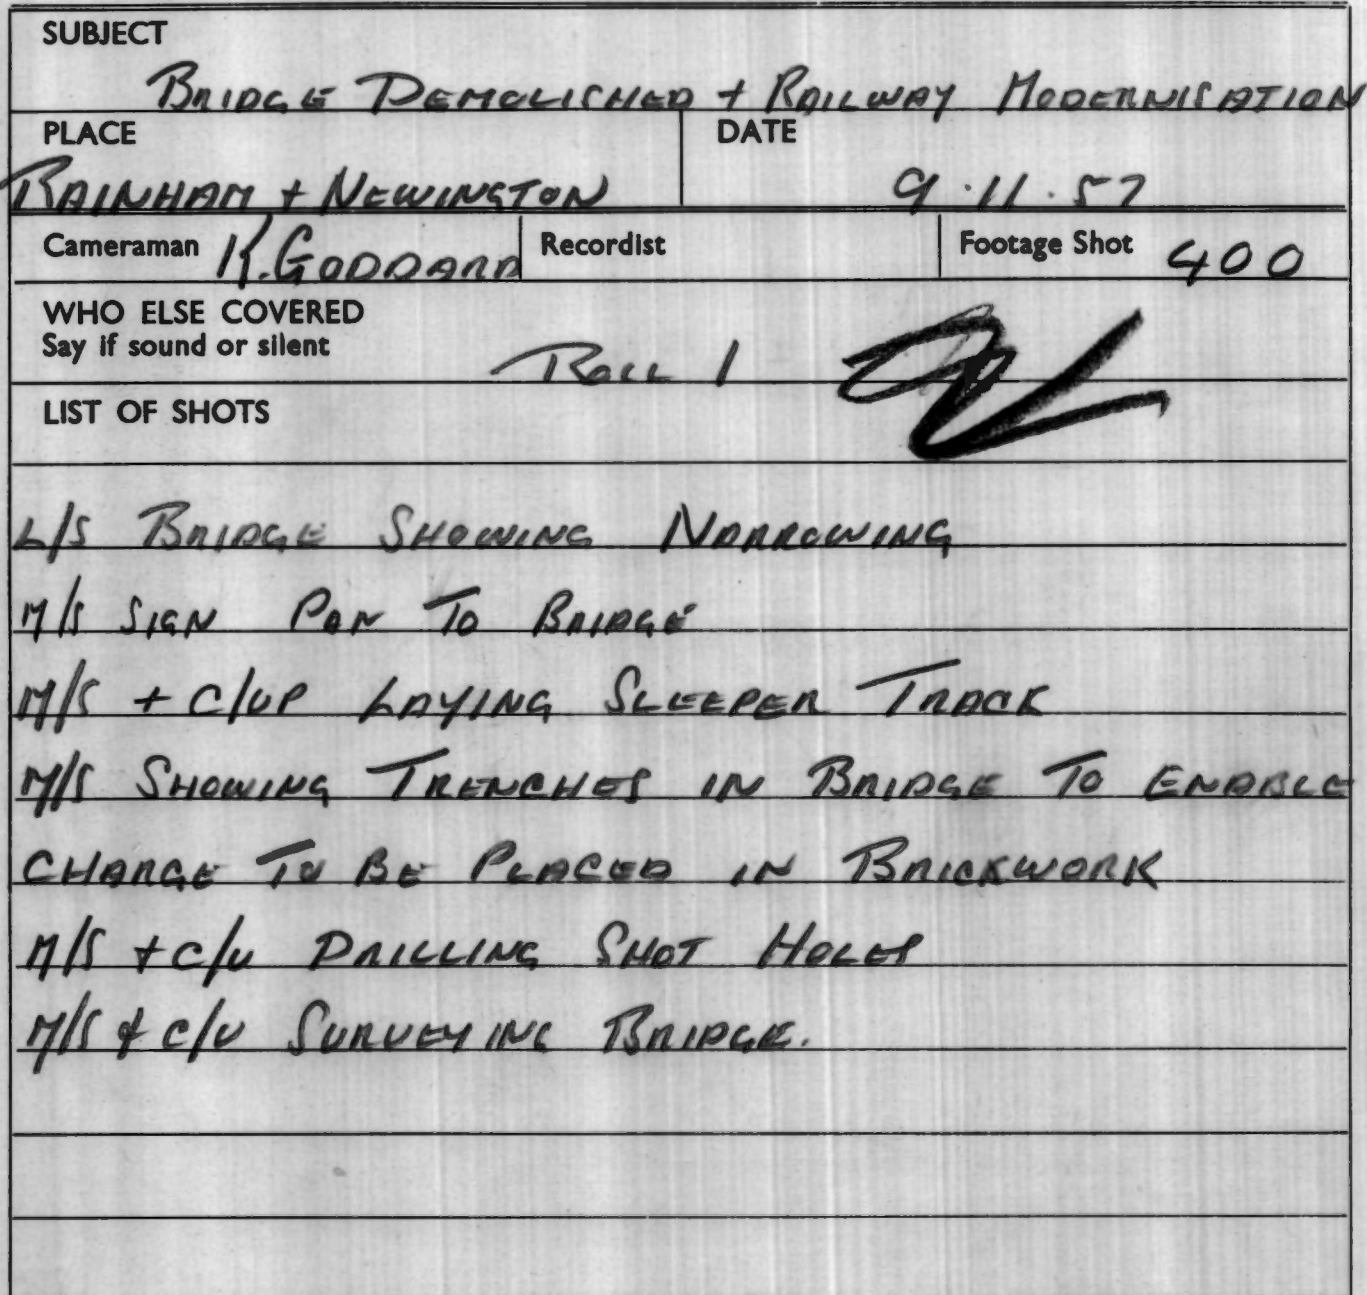 SUBJECT
BRIDGE DEMOLISHED + RAILWAY MODERNISATION
PLACE DATE
RAINHAM + NEWINGTON 9.11.57
Cameraman K.GODDARD Recordist Footage Shot 400
WHO ELSE COVERED
Say if sound or silent
ROLL 1
LIST OF SHOTS
L/S BRIDGE SHOWING NARROWING
M/S SIGN PAN TO BRIDGE
M/S + C/UP LAYING SLEEPER TRACK
M/S SHOWING TRENCHES IN BRIDGE TO ENABLE
CHARGE TO BE PLACED IN BRICKWORK
M/S + C/U DRILLING SHOT HOLES
M/S & C/U SURVEYING BRIDGE.